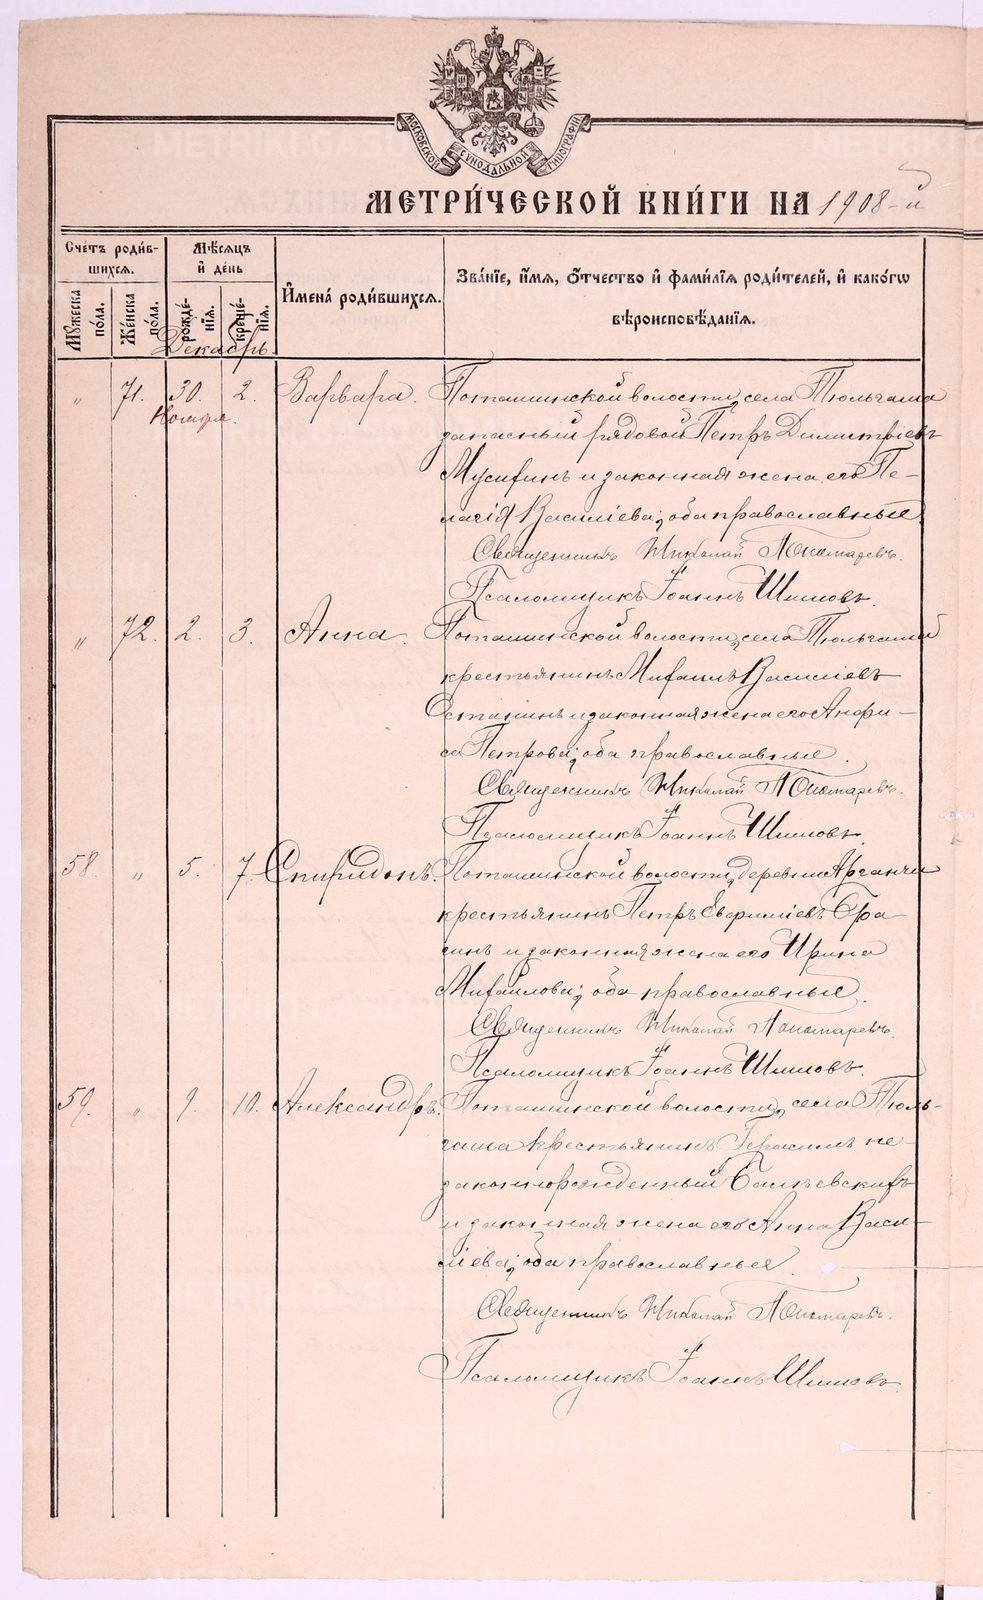 МОСКОВСКОЙ СѴНОДАЛЬНОЙ ТИПОГРАФІИ
МЕТРИ́ЧЕСКОЙ КНИ́ГИ НА 1908-й
Счетъ роди́вшихсѧ.
Мѣсѧцъ и҆ день
И҆мена̀ роди́вшихсѧ.
Зва́нїе, и҆́мѧ, о҆́тчество и҆ фами́лїѧ роди́телей, и҆ како́гѡ
вѣроисповѣ́данїѧ.
Мꙋжеска по́ла.
Же́нска по́ла.
рожде́нїѧ.
креще́нїѧ.
Декабрь.
„ 71. 30. Ноября. 2. Варвара. Поташинской волости, села Тюльгаша
запасный рядовой Петръ Димитріевъ
Мусихинъ и законная жена его Пе-
лагія Васильева; оба православные.
Священникъ Николай Пономаревъ.
Псаломщикъ Іоаннъ Шиловъ.
„ 72. 2. 3. Анна. Поташинской волости, села Тюльгаша
крестьянинъ Михаилъ Василіевъ
Останинъ и законная жена его Анфи-
са Петрова; оба православные.
Священникъ Николай Пономаревъ.
Псаломщикъ Іоаннъ Шиловъ.
58. „ 5. 7. Спиридонъ. Поташинской волости, деревни Артанчи
крестьянинъ Петръ Евфиміевъ
и законная жена его Ирина
Михайлова; оба православные.
Священникъ Николай Пономаревъ.
Псаломщикъ Іоаннъ Шиловъ.
59. „ 9. 10. Александръ. Поташинской волости, села Тюль-
гаша крестьянинъ Герасимъ не-
законнорожденный
и законная жена его Анна Васи-
ліева; оба православные.
Священникъ Николай Пономаревъ.
Псаломщикъ Іоаннъ Шиловъ.
METRIKI.GASO-URAL.RU